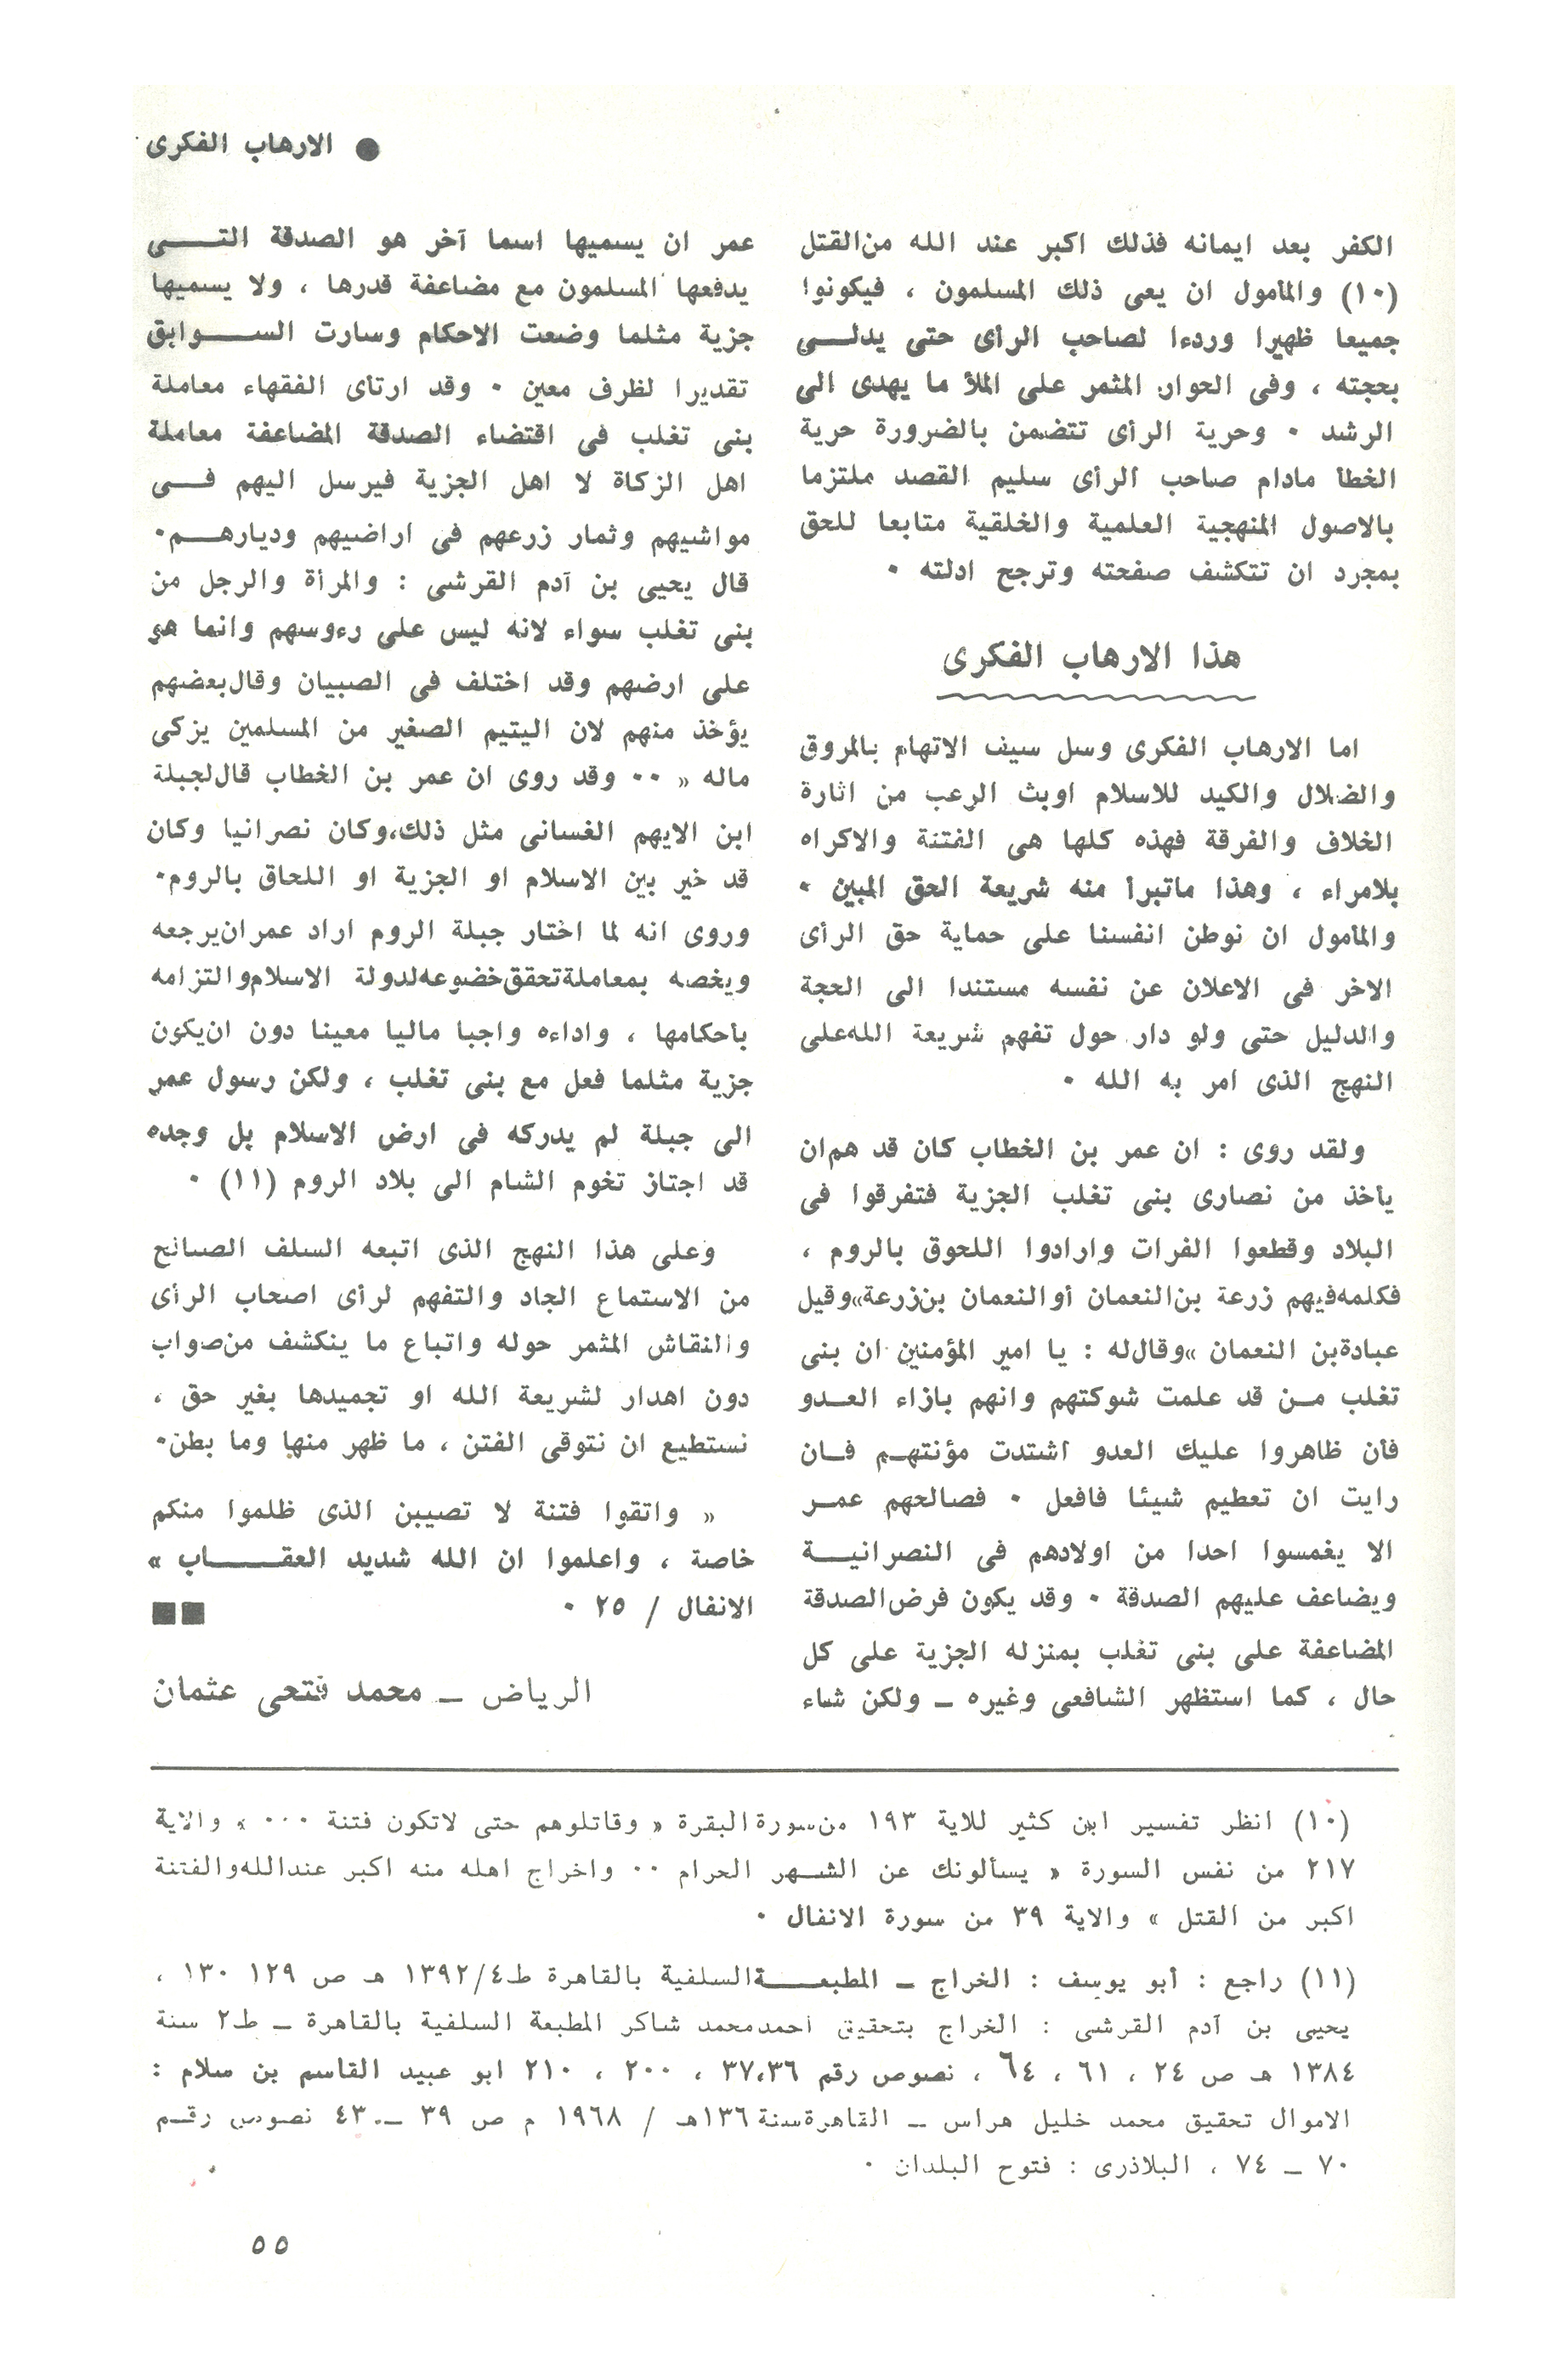 ● الارهاب الفكرى
الكفر بعد ايمانه فذلك اكبر عند الله من القتل
(١٠) والمأمول ان يعى ذلك المسلمون ، فيكونوا
جميعا ظهيرا وردءا لصاحب الرأى حتى يدلــى
بحجته ، وفى الحوار المثمر على الملأ ما يهدى الى
الرشد ٠ وحرية الرأى تتضمن بالضرورة حرية
الخطأ مادام صاحب الرأى سليم القصد ملتزما
بالاصول المنهجية العلمية والخلقية متابعا للحق
بمجرد ان تتكشف صفحته وترجح ادلته ٠
هذا الارهاب الفكرى
اما الارهاب الفكرى وسل سيف الاتهام بالمروق
والضلال والكيد للاسلام اوبث الرعب من اثارة
الخلاف والفرقة فهذه كلها هى الفتنة والاكراه
بلامراء ، وهذا ماتبرأ منه شريعة الحق المبين ٠
والمأمول ان نوطن انفسنا على حماية حق الرأى
الاخر فى الاعلان عن نفسه مستندا الى الحجة
والدليل حتى ولو دار حول تفهم شريعة الله على
النهج الذى امر به الله ٠
ولقد روى : ان عمر بن الخطاب كان قد هم ان
يأخذ من نصارى بنى تغلب الجزية فتفرقوا فى
البلاد وقطعوا الفرات وارادوا اللحوق بالروم ،
فكلمه فيهم زرعة بن النعمان أو النعمان بن زرعة» وقيل
عبادة بن النعمان » وقال له : يا امير المؤمنين ان بنى
تغلب مـن قد علمت شوكتهم وانهم بازاء العـدو
فأن ظاهروا عليك العدو اشتدت مؤنتهـم فـان
رايت ان تعطيم شيئا فافعل ٠ فصالحهم عمـر
الا يغمسوا احدا من اولادهم فى النصرانيــة
ويضاعف عليهم الصدقة ٠ وقد يكون فرض الصدقة
المضاعفة على بنى تغلب بمنزله الجزية على كل
حال ، كما استظهر الشافعى وغيره ـ ولكن شاء
عمر ان يسميها اسما آخر هو الصدقة التــــى
يدفعها المسلمون مع مضاعفة قدرها ، ولا يسميها
جزية مثلما وضعت الاحكام وسارت الســـوابق
تقديرا لظرف معين ٠ وقد ارتأى الفقهاء معاملة
بنى تغلب فى اقتضاء الصدقة المضاعفة معاملة
اهل الزكاة لا اهل الجزية فيرسل اليهم فــى
مواشيهم وثمار زرعهم فى اراضيهم وديارهــم٠
قال يحيى بن آدم القرشى : والمرأة والرجل من
بنى تغلب سواء لانه ليس على رءوسهم وانما هو
على ارضهم وقد اختلف فى الصبيان وقال بعضهم
يؤخذ منهم لان اليتيم الصغير من المسلمين يزكى
ماله « ٠٠ وقد روى ان عمر بن الخطاب قال لجبلة
ابن الايهم الغسانى مثل ذلك، وكان نصرانيا وكان
قد خير بين الاسلام او الجزية او اللحاق بالروم٠
وروى انه لما اختار جبلة الروم اراد عمر ان يرجعه
ويخصه بمعاملة تحقق خضوعه لدولة الاسلام والتزامه
بأحكامها ، واداءه واجبا ماليا معينا دون ان يكون
جزية مثلما فعل مع بنى تغلب ، ولكن رسول عمر
الى جبلة لم يدركه فى ارض الاسلام بل وجده
قد اجتاز تخوم الشام الى بلاد الروم (١١) ٠
وعلى هذا النهج الذى اتبعه السلف الصالح
من الاستماع الجاد والتفهم لرأى اصحاب الرأى
والنقاش المثمر حوله واتباع ما ينكشف من صواب
دون اهدار لشريعة الله او تجميدها بغير حق ،
نستطيع ان نتوقى الفتن ، ما ظهر منها وما بطن٠
« واتقوا فتنة لا تصيبن الذى ظلموا منكم
خاصة ، واعلموا ان الله شديد العقــــاب »
الانفال / ٢٥ ٠ ■■
الرياض ـ محمد فتحى عثمان
(١٠) انظر تفسير ابن كثير للاية ١٩٣ من سورة البقرة « وقاتلوهم حتى لاتكون فتنة ٠٠٠ » والاية
٢١٧ من نفس السورة « يسألونك عن الشـهر الحرام ٠٠ واخراج اهله منه اكبر عند الله والفتنة
اكبر من القتل » والاية ٣٩ من سورة الانفال ٠
(١١) راجع : أبو يوسف : الخراج ـ المطبعــة السلفية بالقاهرة ط٤/١٣٩٢ هـ ص ١٢٩ ١٣٠ ،
يحيى بن آدم القرشى : الخراج بتحقيق احمد محمد شاكر المطبعة السلفية بالقاهرة ـ ط٢ سنة
١٣٨٤ هـ ص ٢٤ ، ٦١ ، ٦٤ ، نصوص رقم ٣٧،٣٦ ، ٢٠٠ ، ٢١٠ ابو عبيد القاسم بن سلام :
الاموال تحقيق محمد خليل هراس ـ القاهرة سنة ١٣٦هـ / ١٩٦٨ م ص ٣٩ ـ ٤٣٠ نصوص رقـم
٧٠ ـ ٧٤ ، البلاذرى : فتوح البلدان ٠
٥٥